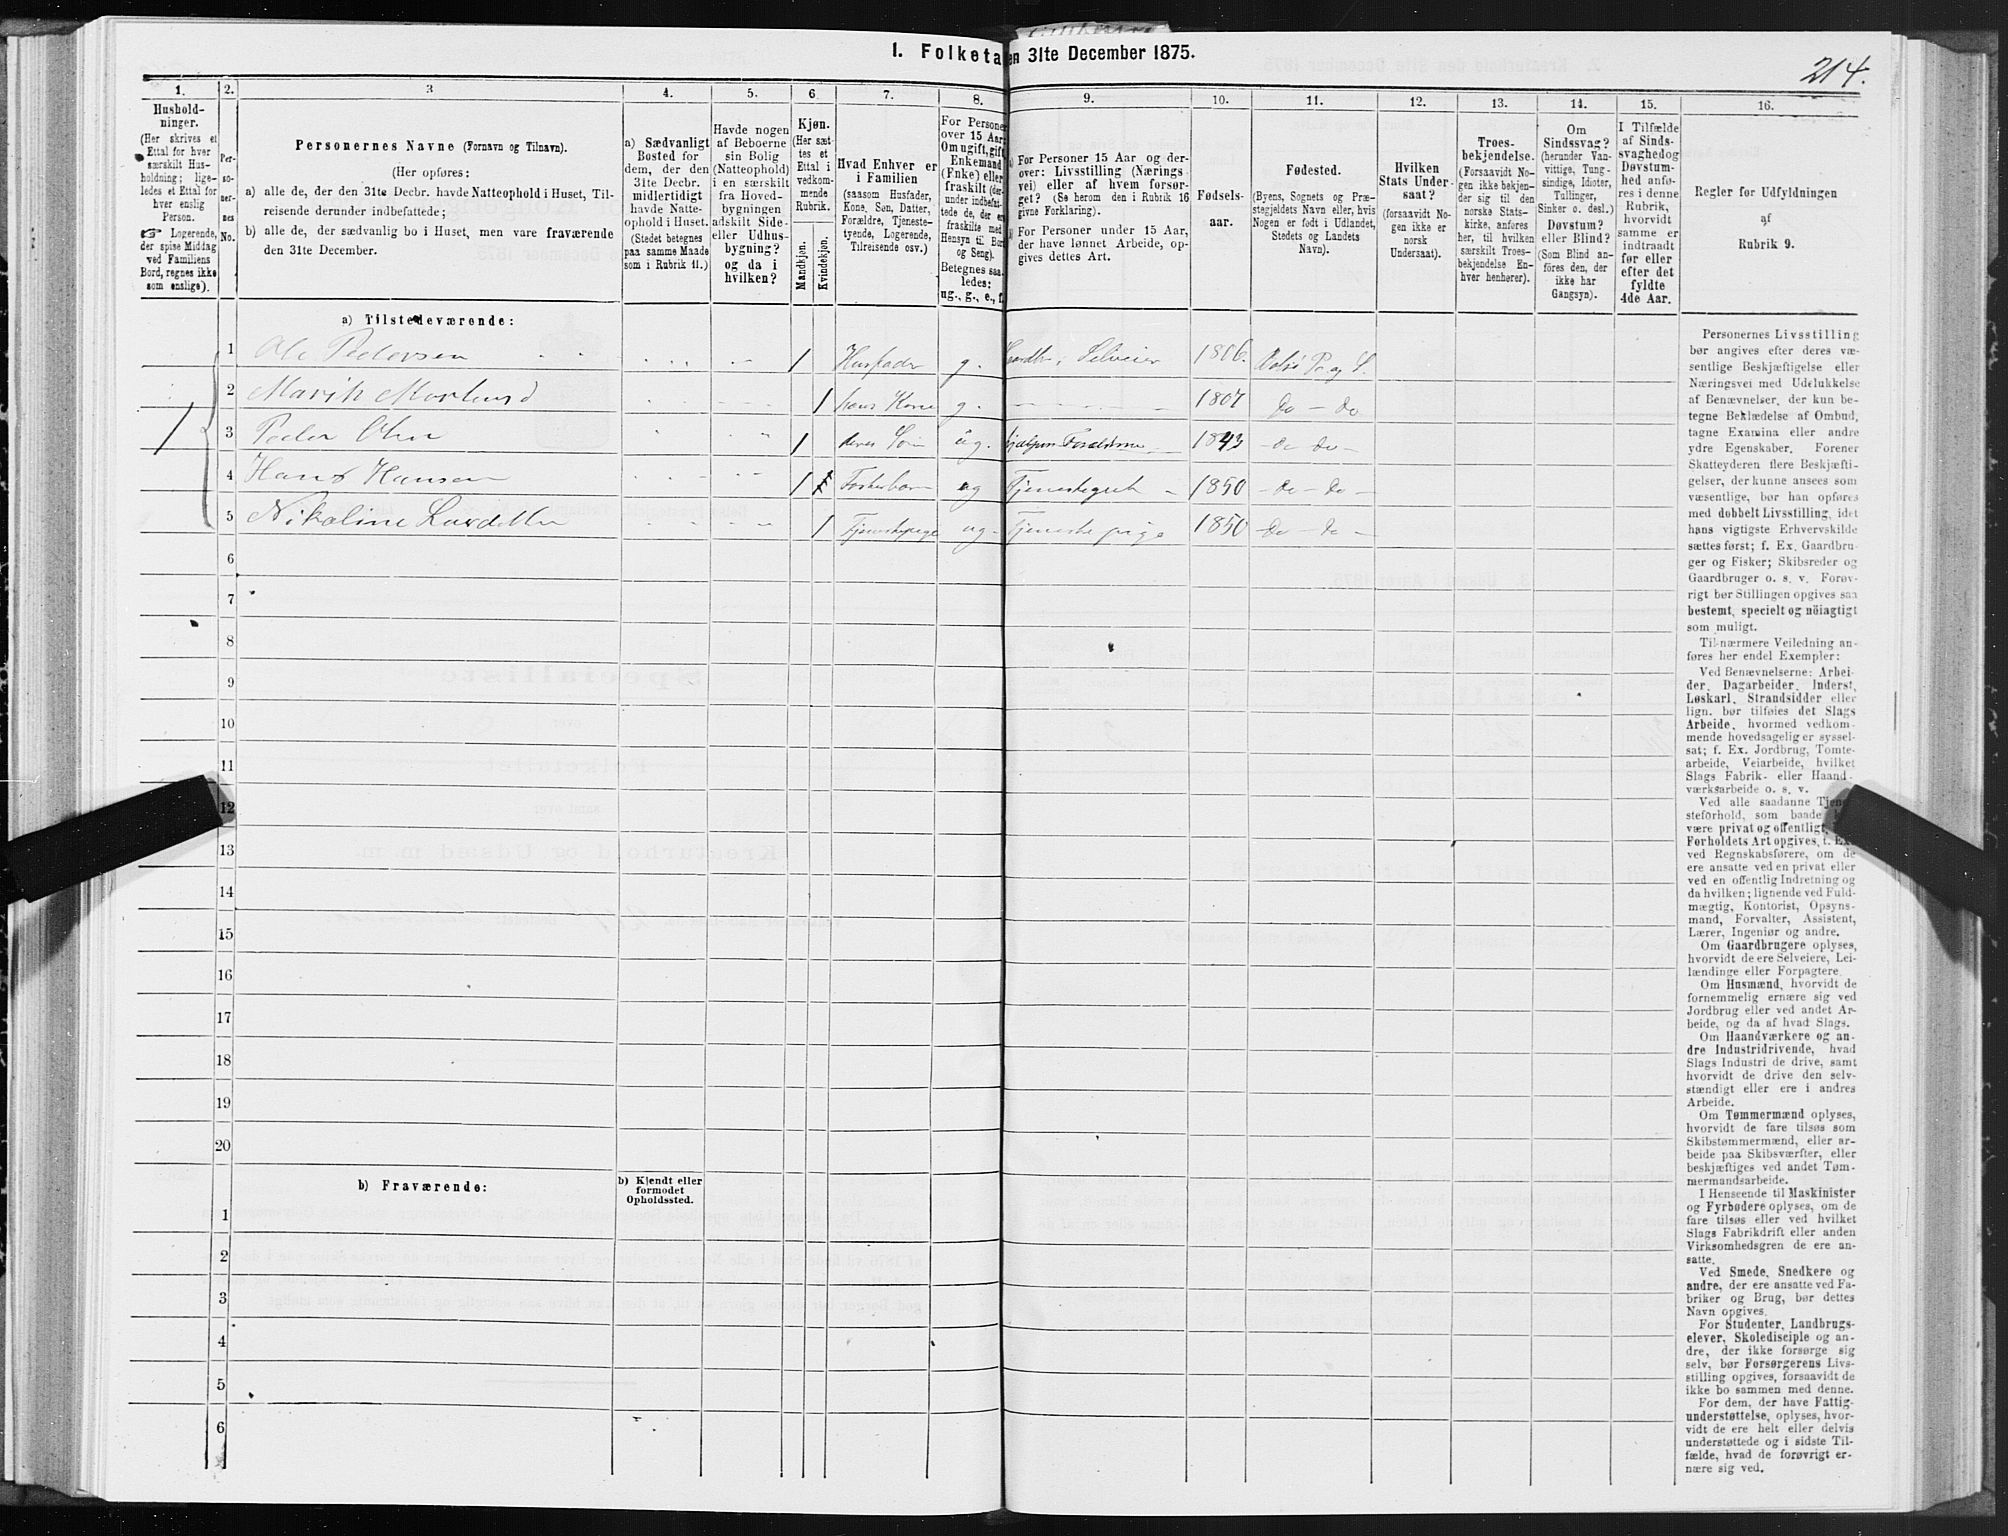 1. Folketa en 31te December 1875.
214.
1. 2. 3 4. 5. 6 7. 8. 9. 10. 11. 12. 13. 14. 15. 16.
Hushold-
ninger.
(Her skrives et
Ettal for hver
særskilt Hus-
holdning; lige-
ledes et Ettal for
hver enslig
Person.
☞ Logerende,
der spise Middag
ved Familiens
Bord, regnes ikke
som enslige).
Per-
so-
ner-
nes
No.
Personernes Navne (Fornavn og Tilnavn).
(Her opføres:
a) alle de, der den 31te Decbr. havde Natteophold i Huset, Til-
reisende derunder indbefattede;
b) alle de, der sædvanlig bo i Huset, men vare fraværende
den 31te December.
a) Sædvanligt
Bosted for
dem, der den
31te Decbr.
midlertidigt
havde Natte-
ophold i Huset.
(Stedet betegnes
paa samme Maade
som i Rubrik 11.)
Havde nogen
af Beboerne
sin Bolig
(Natteophold)
i en særskilt
fra Hoved-
bygningen
adskilt Side-
eller Udhus-
bygning?
og da i
hvilken?
Kjøn.
(Her sæt-
tes et
Ettal i
vedkom-
mende
Rubrik.
Mandkjøn.
Kvindekjøn.
Hvad Enhver er
i Familien
(saasom Husfader,
Kone, Søn, Datter,
Forældre, Tjeneste-
tyende, Logerende,
Tilreisende osv.)
For Personer
over 15 Aar:
Om ugift, gift,
Enkemand
(Enke) eller
fraskilt (der-
under indbefat-
tede de, der er
fraskilte med
Hensyn til Bor
og Seng).
Betegnes saa-
ledes:
ug., g., e., f.
a) For Personer 15 Aar og der-
over: Livsstilling (Nærings-
vei) eller af hvem forsør-
get? (Se herom den i Rubrik 16
givne Forklaring).
b) For Personer under 15 Aar,
der have lønnet Arbeide, op-
gives dettes Art.
Fødsels-
aar.
Fødested.
(Byens, Sognets og Præ-
stegjeldets Navn eller, hvis
Nogen er født i Udlandet,
Stedets og Landets
Navn).
Hvilken
Stats Under-
saat?
(forsaavidt No-
gen ikke er
norsk
Undersaat).
Troes-
bekjendelse.
(Forsaavidt No-
gen ikke bekjen-
der sig til den
norske Stats-
kirke, anføres
her, til hvilken
særskilt Troes-
bekjendelse En-
hver henhører).
Om
Sindssvag?
(herunder Van-
vittige, Tung-
sindige, Idioter,
Tullinger,
Sinker o. desl.)
Døvstum?
eller Blind?
(Som Blind an-
føres den, der
ikke har
Gangsyn).
I Tilfælde
af Sinds-
svaghed og
Døvstum-
hed anfø-
res i denne
Rubrik,
hvorvidt
samme er
indtraadt
før eller
efter det
fyldte
4de Aar.
Regler for Udfyldningen
af
Rubrik 9.
a) Tilstedeværende:
1 Ole Pedersen 1 Husfader g. Gardbr. Selveier 1806.
2 Marith 1 hans Kone g. 1807 Do - Do
1 3 Peder Olsen 1 deres Søn ug. 1843 do Do
4 Hans Hansen 1 ug 1850 Do - Do
5 Nikoline 1 Tjenestepige ug. Tjenestepige 1850 Do - Do
6
7
8
9
10
11
12
13
14
15
16
17
18
19
20
b) Fraværende:
b) Kjendt eller
formodet
Opholdssted.
1
2
3
4
5
6
Personernes Livsstilling
bør angives efter deres væ-
sentlige Beskjæftigelse eller
Næringsvei med Udelukkelse
af Benævnelser, der kun be-
tegne Beklædelse af Ombud,
tagne Examina eller andre
ydre Egenskaber. Forener
Skatteyderen flere Beskjæfti-
gelser, der kunne ansees som
væsentlige, bør han opføres
med dobbelt Livsstilling, idet
hans vigtigste Erhvervskilde
sættes først; f. Ex. Gaardbru-
ger og Fisker; Skibsreder og
Gaardbruger o. s. v. Forøv-
rigt bør Stillingen opgives saa
bestemt, specielt og nöiagtigt
som muligt.
Til nærmere Veiledning an-
føres her endel Exempler:
Ved Benævnelserne: Arbei-
der, Dagarbeider, Inderst,
Løskarl, Strandsidder eller
lign. bør tilføies det Slags
Arbeide, hvormed vedkom-
mende hovedsagelig er syssel-
sat; f. Ex. Jordbrug, Tomte-
arbeide, Veiarbeide, hvilket
Slags Fabrik- eller Haand-
værksarbeide o. s. v.
Ved alle saadanne Tjene-
steforhold, som baade
være privat og offentligt,
Forholdets Art opgives, f. Ex.
ved Regnskabsførere, om de
ere ansatte ved en privat eller
ved en offentlig Indretning og
da hvilken; lignende ved Fuld-
mægtig, Kontorist, Opsyns-
mand, Forvalter, Assistent,
Lærer, Ingeniør og andre.
Om Gaardbrugere oplyses,
hvorvidt de ere Selveiere, Lei-
lændinge eller Forpagtere.
Om Husmænd, hvorvidt de
fornemmelig ernære sig ved
Jordbrug eller ved andet Ar-
beide, og da af hvad Slags.
Om Haandværkere og an-
dre Industridrivende, hvad
Slags Industri de drive, samt
hvorvidt de drive den selv-
stændigt eller ere i andres
Arbeide.
Om Tømmermænd oplyses,
hvorvidt de fare tilsøs som
Skibstømmermænd, eller ar-
beide paa Skibsværfter, eller
beskjæftiges ved andet Tøm-
mermandsarbeide.
I Henseende til Maskinister
og Fyrbødere oplyses, om de
fare tilsøs eller ved hvilket
Slags Fabrikdrift eller anden
Virksomhedsgren de ere an-
satte.
Ved Smede, Snedkere og
andre, der ere ansatte ved Fa-
briker og Brug, bør dettes
Navn opgives.
For Studenter, Landbrugs-
elever, Skoledisciple og an-
dre, der ikke forsørge sig
selv, bør Forsørgerens Livs-
stilling opgives, forsaavidt de
ikke bo sammen med denne.
For dem, der have Fattig-
understøttelse, oplyses, hvor-
vidt de ere helt eller delvis
understøttede og i sidste Til-
fælde, hvad de forøvrigt er-
nære sig ved.